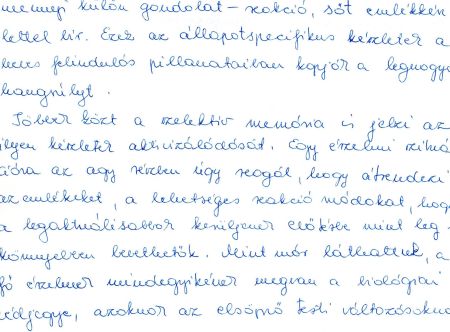 mennyi külön gondolat-reakció, sőt emlékkész
lettel bír. Ezek az állapotspecifikus készletek a
heves felindulás pillanataiban kapják a legnagyo
hangsúlyt.
Többek közt a szelektív memória is jelzi az
ilyen készletek aktivizálódását. Egy érzelmi szituá
cióra az agy részben úgy reagál, hogy átrendezi
az emlékeket, a lehetséges reakció módokat, hogy
a legaktuálisabbak kerüljenek előtérbe mint leg-
könnyebben bevethetők. Mint már láthattuk, a
fő érzelmek mindegyikének megvan a biológiai
védjegye, azoknak az elsöprő testi változásoknak